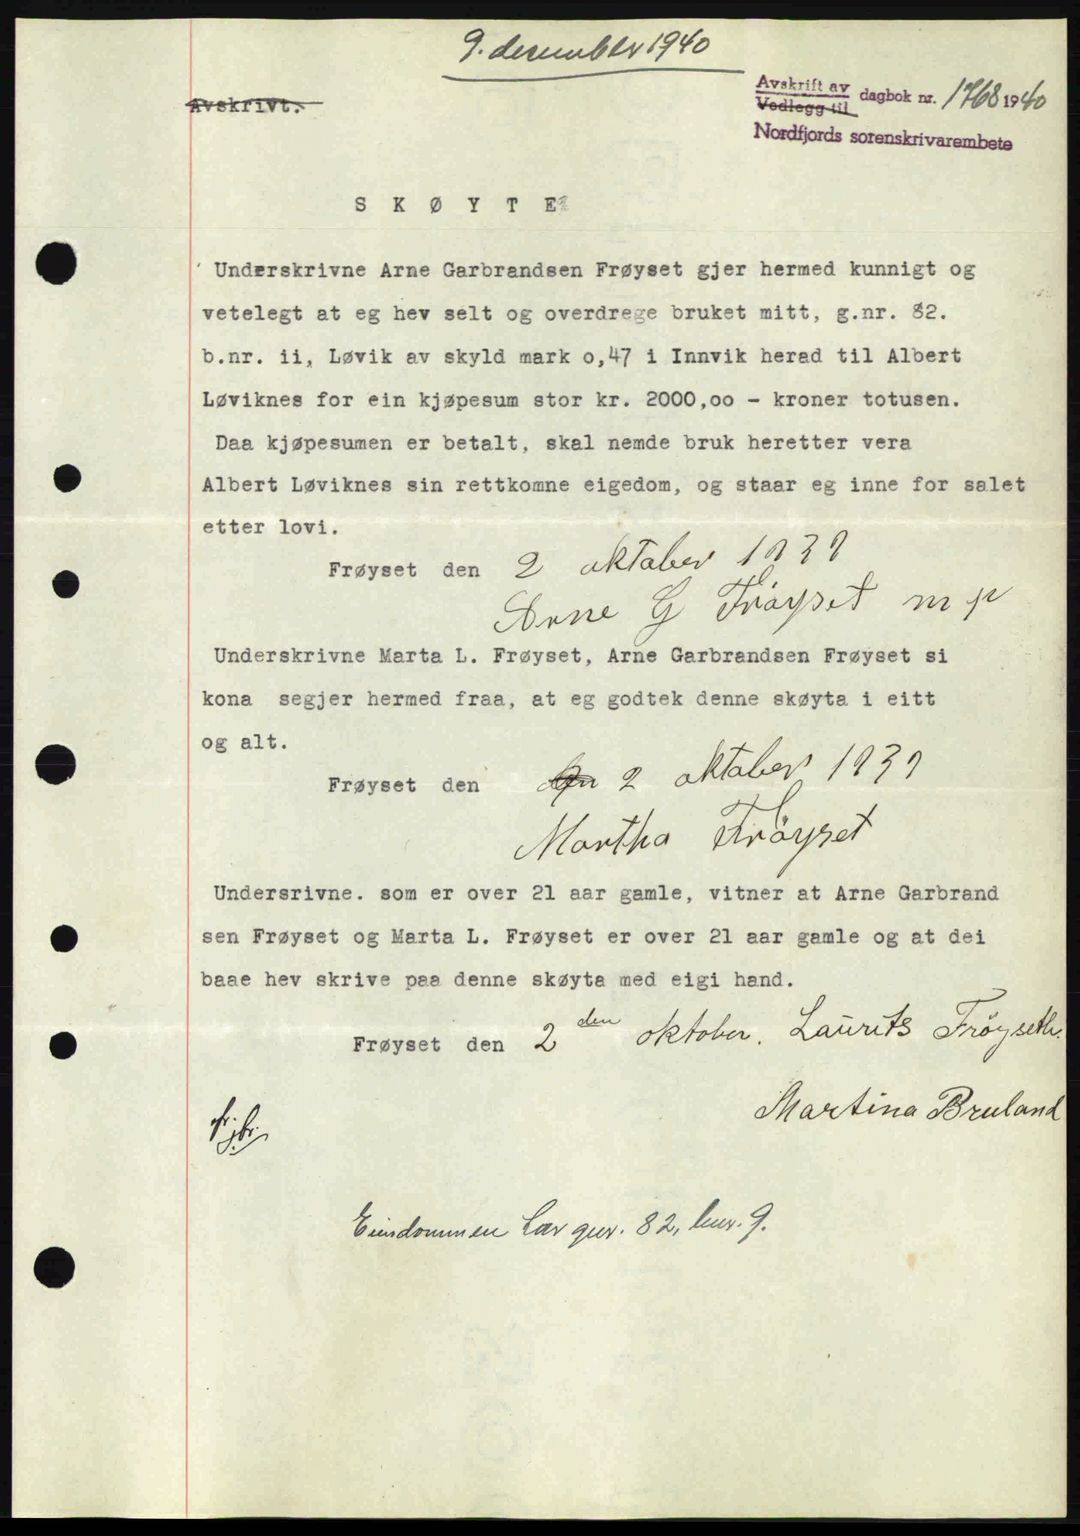 9. desember 1940
Avskrift av
Vedlegg til
dagbok nr. 1768 1940
Nordfjords sorenskrivarembete
Avskrivt.
S K Ø Y T E
Underskrivne Arne Garbrandsen Frøyset gjer hermed kunnigt og
vetelegt at eg hev selt og overdrege bruket mitt, g.nr. 82.
b.nr. ii, Løvik av skyld mark o,47 i Innvik herad til Albert
Løviknes for ein kjøpesum stor kr. 2000,oo - kroner totusen.
Daa kjøpesumen er betalt, skal nemde bruk heretter vera
Albert Løviknes sin rettkomne eigedom, og staar eg inne for salet
etter lovi.
Frøyset den 2 oktober 1939
Arne G Frøyset m p
Underskrivne Marta L. Frøyset, Arne Garbrandsen Frøyset si
kona segjer hermed fraa, at eg godtek denne skøyta i eitt
og alt.
Frøyset den 2 oktober 1939
Martha Frøyset
Undersrivne. som er over 21 aar gamle, vitner at Arne Garbrand
sen Frøyset og Marta L. Frøyset er over 21 aar gamle og at dei
baae hev skrive paa denne skøyta med eigi hand.
Frøyset den 2 den oktober. Laurits Frøyseth.
Martina Bruland
Eiendommen har gnr. 82, bnr. 9.